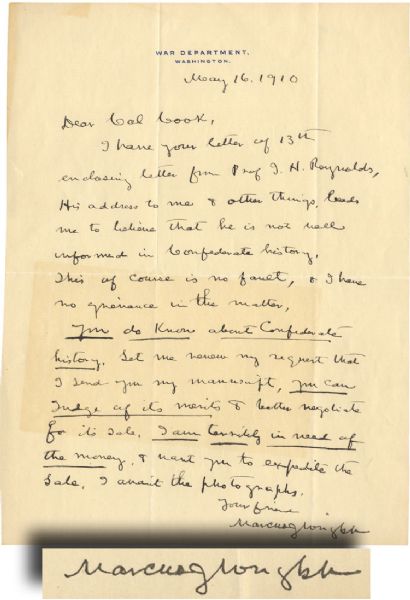 WAR DEPARTMENT,
WASHINGTON.
May 16. 1910
Dear Col Cook,
I have your letter of 13th
enclosing letter from Prof J. H. Reynolds,
His address to me & other things, leads
me to believe that he is not well
informed in Confederate history.
This of course is no fault, & I have
no grievance in the matter,
you do Know about Confederate
history. Let me renew my request that
I send you my manuscript, you can
Judge of its merits & better negotiate
for its sale. I am terribly in need of
the money, & want you to expedite the
Sale. I await the photographs.
Your friend
Marcus J Wright
Marcus J Wright